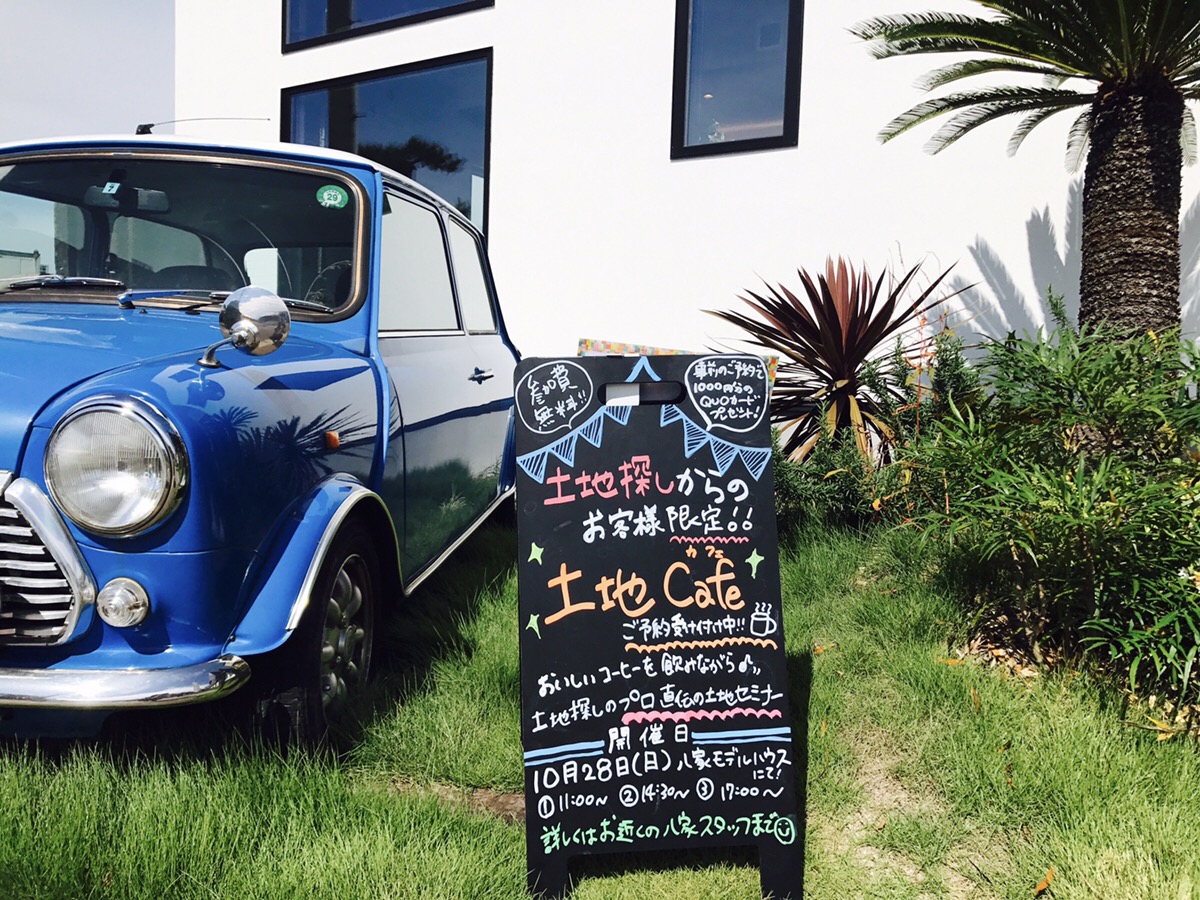 29
参加費
無料!!
事前のご予約で
1000円分の
QUOカード
プレゼント!
土地探しからの
お客様限定!!
カフェ
土地Cafe
ご予約受け付け中!!
おいしいコーヒーを飲みながら♪
土地探しのプロ直伝の土地セミナー
開催日
10月28日(日)八家モデルハウス
にて!
①11:00～ ②14:30～ ③17:00～
詳しくはお近くの八家スタッフまで